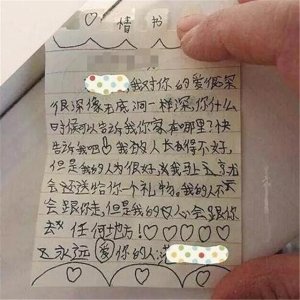 情书
我对你的爱很深
很深像无底洞一样深,你什么
时候可以告诉我你家在哪里?快
告诉我吧!我人长得不好,
但是我的人为很好,我马上就
会还送给你一个礼物。我的人不
会跟你走,但是我的心会跟你
去任何地方!♡♡♡♡♡
永远爱你的人: